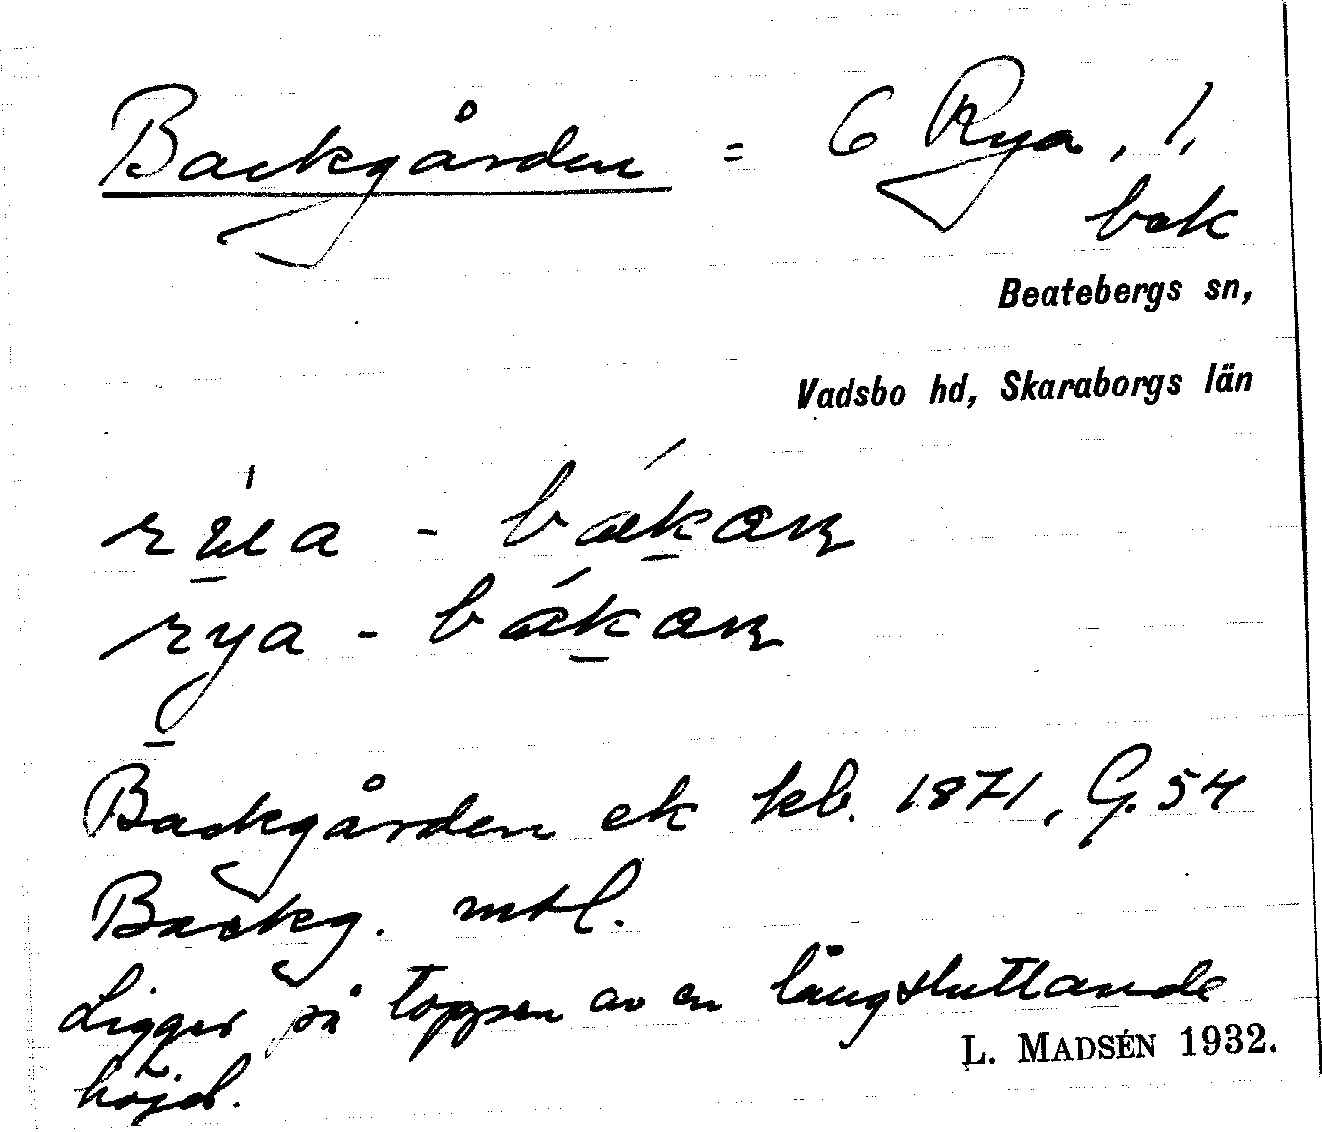 Backgården = 6 Rya, 1,
bak
Beatebergs sn,
Vadsbo hd, Skaraborgs län
rya - bákan
Backgården ek kb. 1871, G. 54
Backg. mtl.
Ligger på toppen av en långsluttande
höjd.
L. MADSÉN 1932.